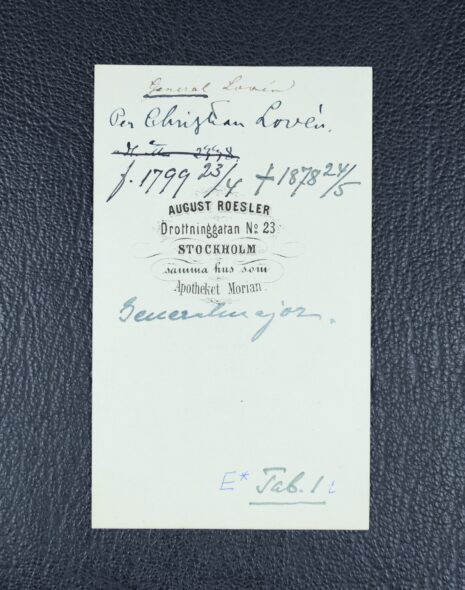 General Lovén
Per Christian Lovén.
f. 1799 23/4 † 1878 24/5
AUGUST ROESLER
Drottninggatan No 23
STOCKHOLM
samma hus som
Apotheket Morian
Generalmajor.
E* Tab. 1